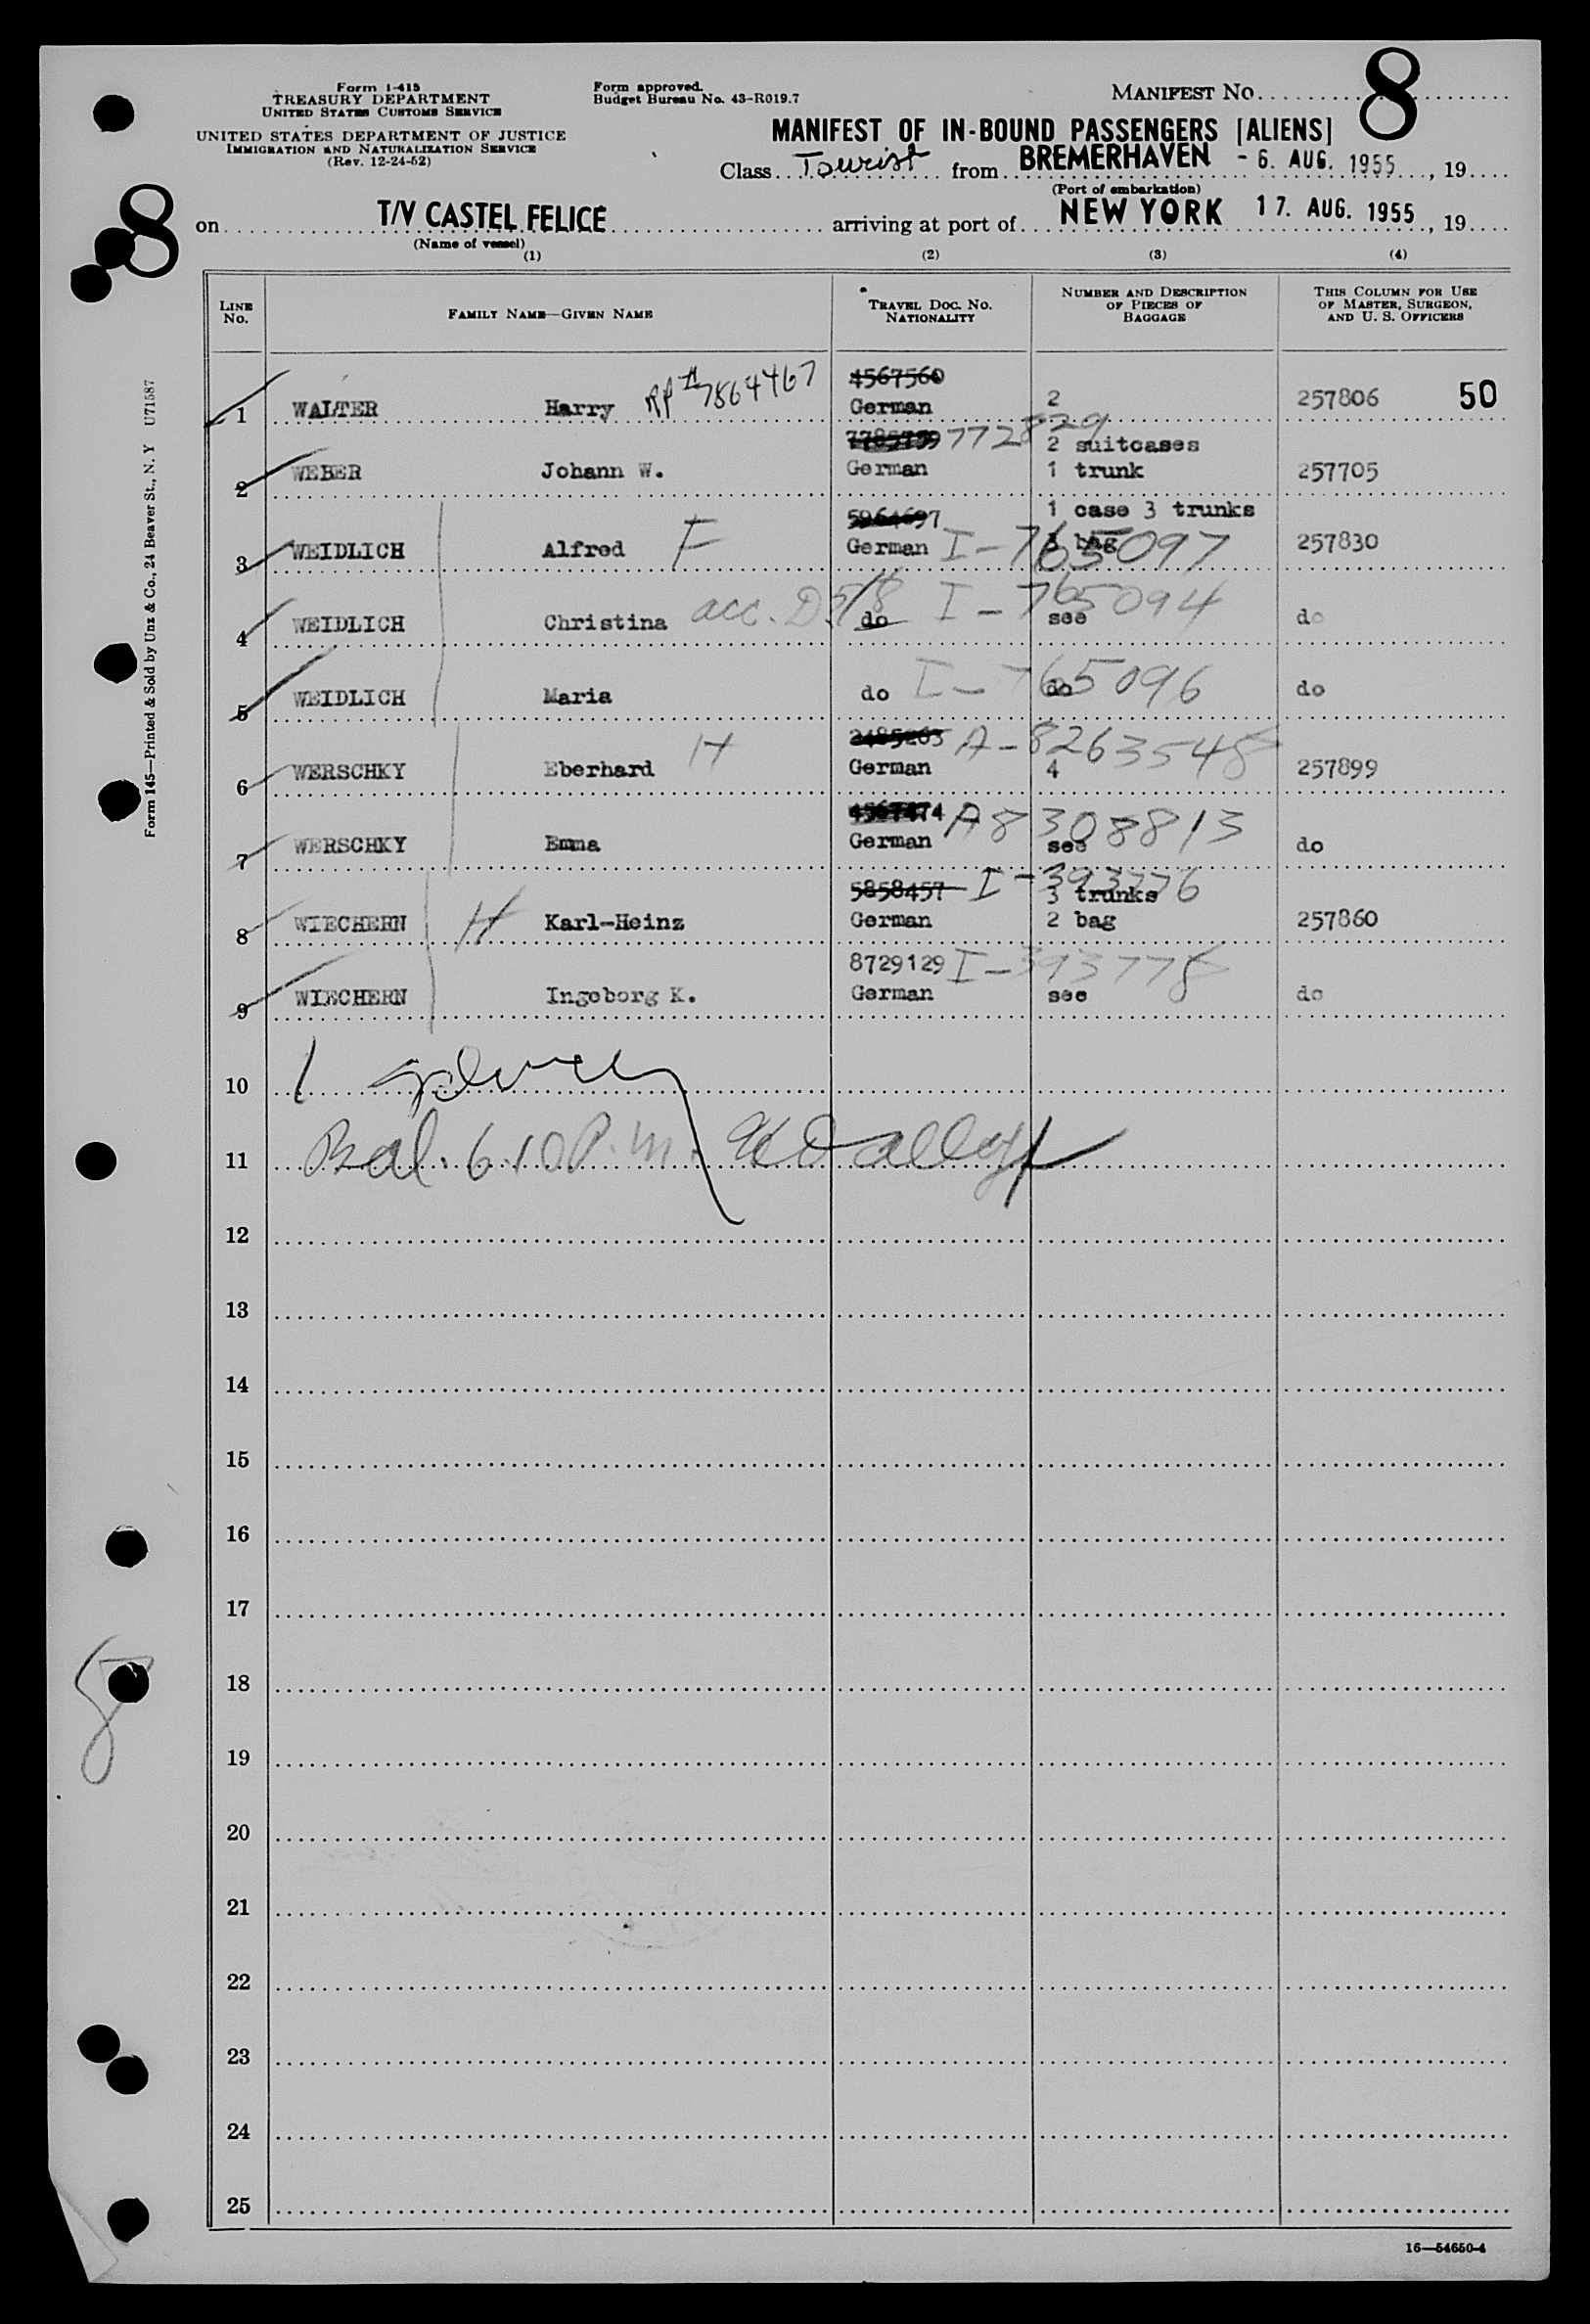 Form I-415
TREASURY DEPARTMENT
UNITED STATES CUSTOMS SERVICE
UNITED STATES DEPARTMENT OF JUSTICE
IMMIGRATION AND NATURALIZATION SERVICE
(Rev. 12-24-52)
Form approved.
Budget Bureau No. 43-R019.7
MANIFEST NO. 8
MANIFEST OF IN-BOUND PASSENGERS [ALIENS]
Class Tourist from BREMERHAVEN - 6. AUG. 1955, 19
(Port of embarkation)
8
on T/V CASTEL FELICE arriving at port of NEW YORK 17. AUG. 1955, 19
(Name of vessel)
(1) (2) (3) (4)
LINE NO. FAMILY NAME—GIVEN NAME TRAVEL DOC. NO. NATIONALITY NUMBER AND DESCRIPTION OF PIECES OF BAGGAGE THIS COLUMN FOR USE OF MASTER, SURGEON, AND U. S. OFFICERS
4567560
1 WALTER Harry RP# 7864467 German 2 257806 50
772829 2 suitcases
2 WEBER Johann W. German 1 trunk 257705
5964697 1 case 3 trunks
3 WEIDLICH Alfred F German I-765097 bag 257830
4 WEIDLICH Christina acc. D.5/8 do I-765094 see do
5 WEIDLICH Maria do I-765096 do do
2485263 A-8263548
6 WERSCHKY Eberhard H German 4 257899
4567474 A8308813
7 WERSCHKY Emma German see do
5858457 I-393776 3 trunks
8 WIECHERN H Karl-Heinz German 2 bag 257860
8729129 I-393778
9 WIECHERN Ingeborg K. German see do
10
11 Bal. 6.10 P.m.
12
13
14
15
16
17
18
8
19
20
21
22
23
24
25
16—54650-4
Form 145—Printed & Sold by Unz & Co., 24 Beaver St., N. Y U71587